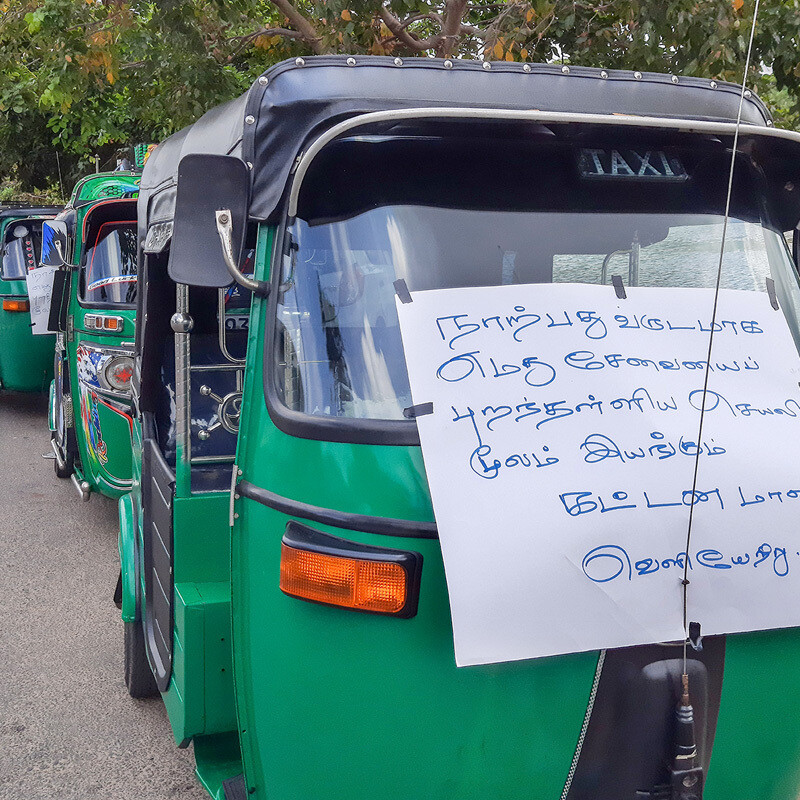 TAXI
நாற்பது வருடமாக
எமது சேவையைப்
புறந்தள்ளிய செயலி
மூலம் இயங்கும்
கட்டண
வெளியேற்று.